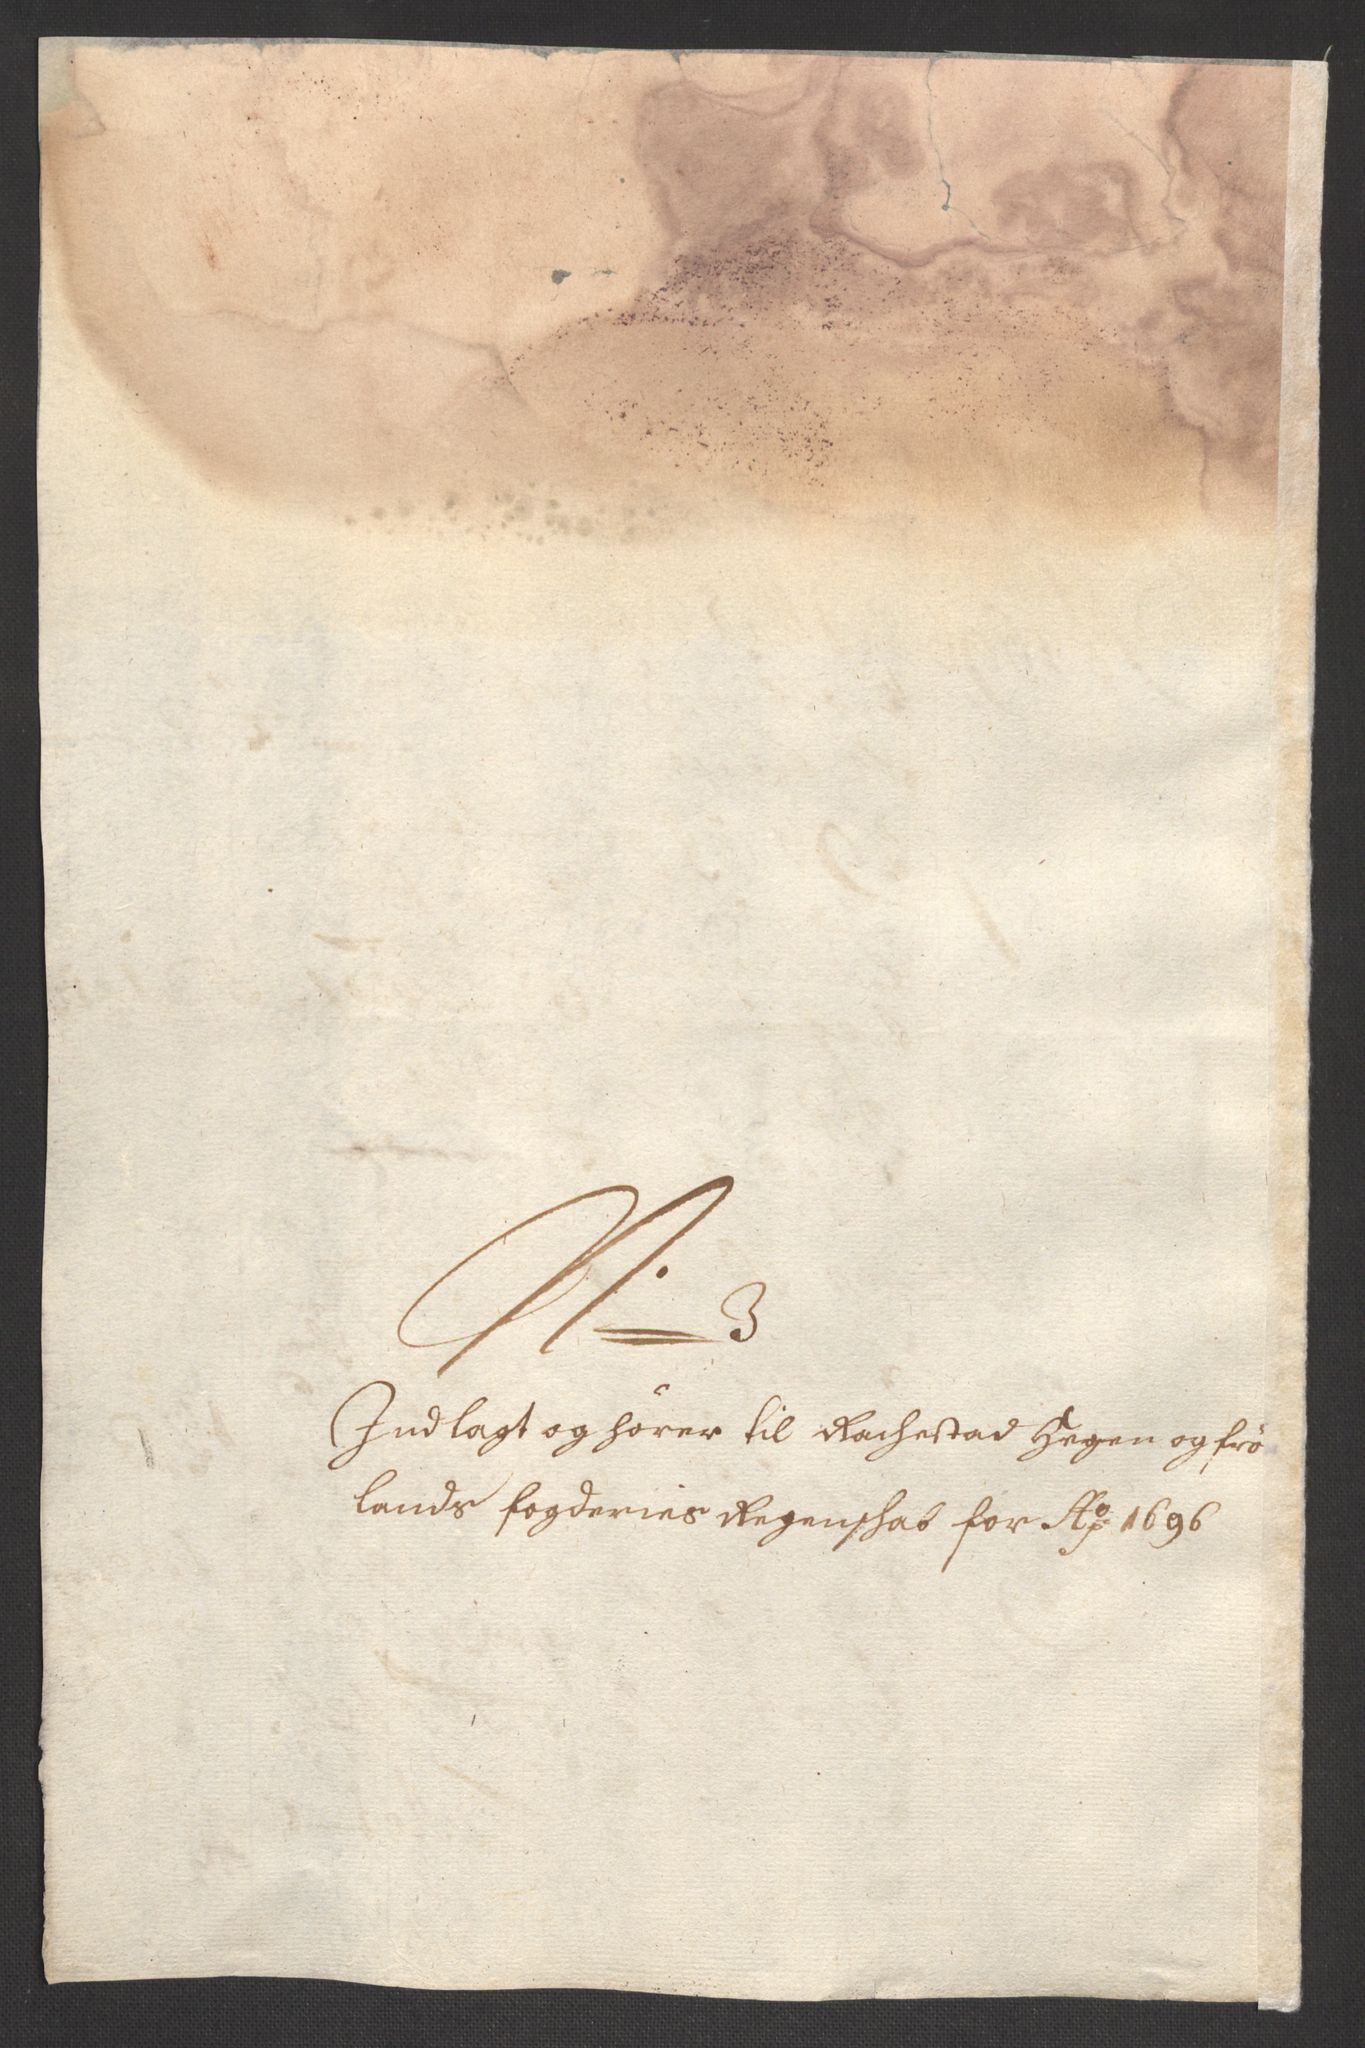 N: 3
Indlagt og hörer til Rachestad Heggen og frö
lands fogderies Regenschab for Ao 1696